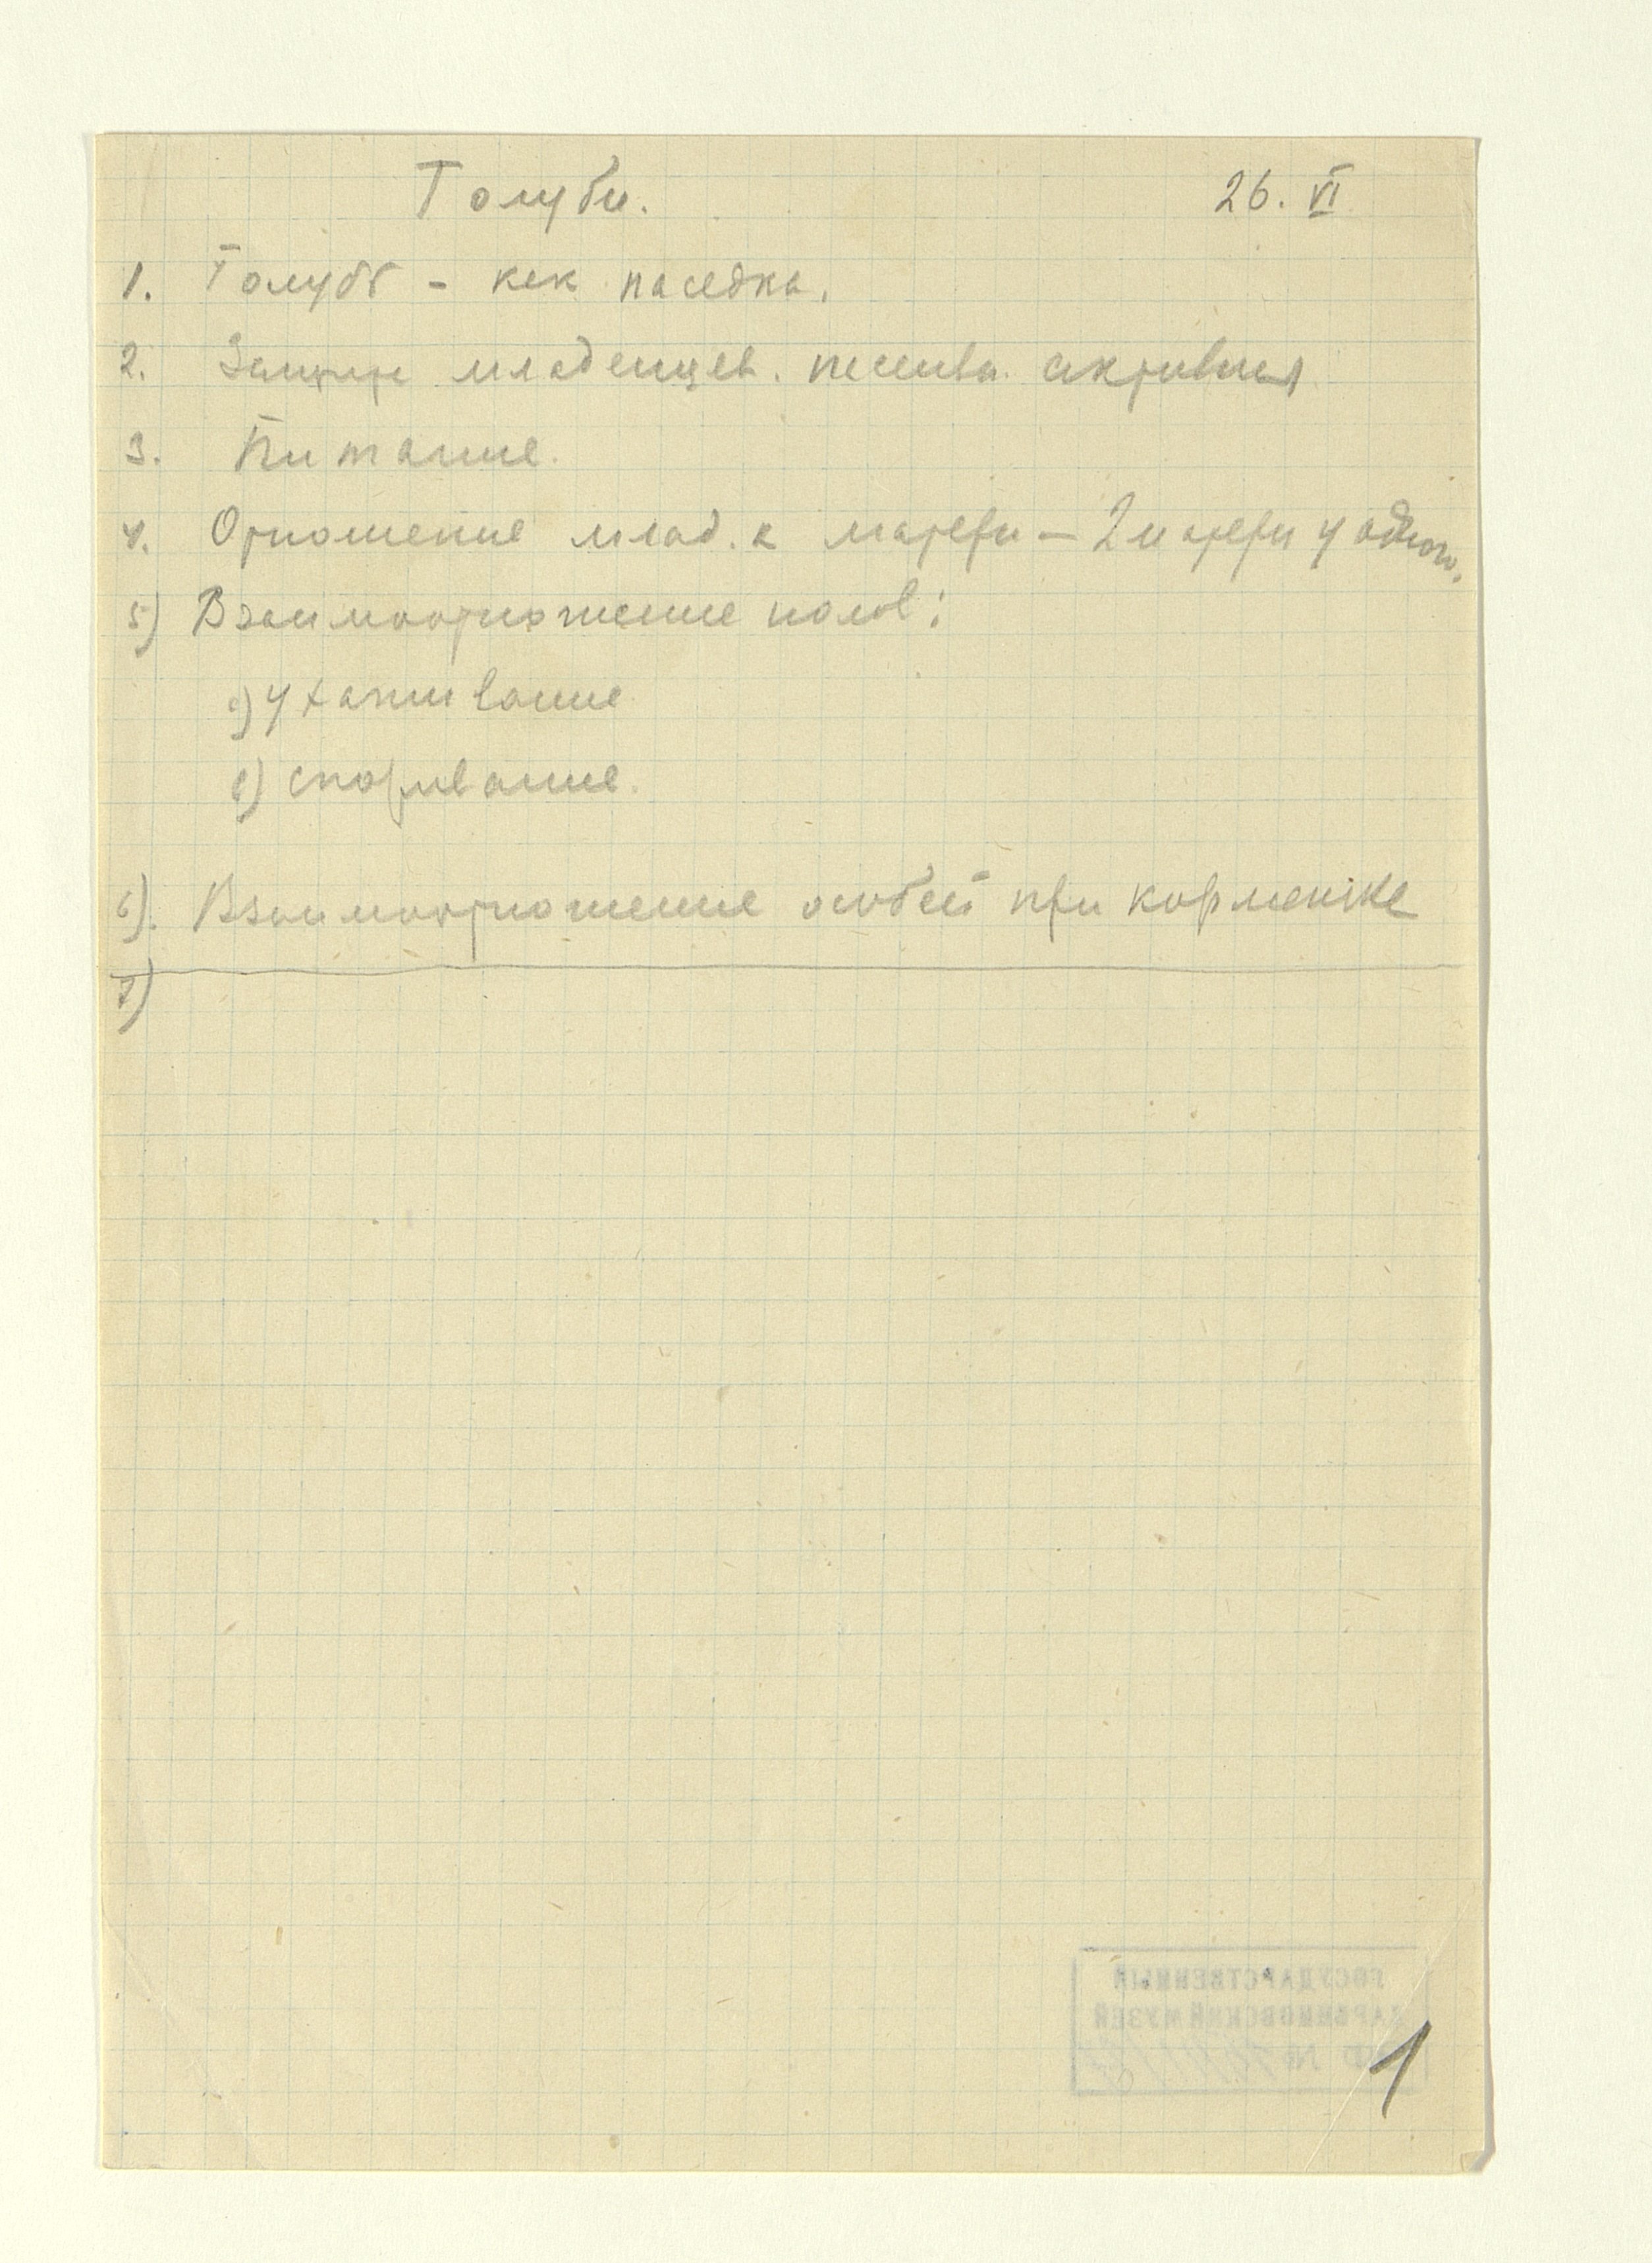 Голуби.
26. VI
1. Голубь - как наседка.
2. Защита младенцев. пассивн. активная
3. Питание.
4. Отношение млад. к матери — 2 матери у одного.
5) Взаимоотношение полов:
а) Ухаживание
в)
6). Взаимоотношение особей при кормежке
7)
ГОСУДАРСТВЕННЫЙ
ДАРВИНОВСКИЙ МУЗЕЙ
№
1